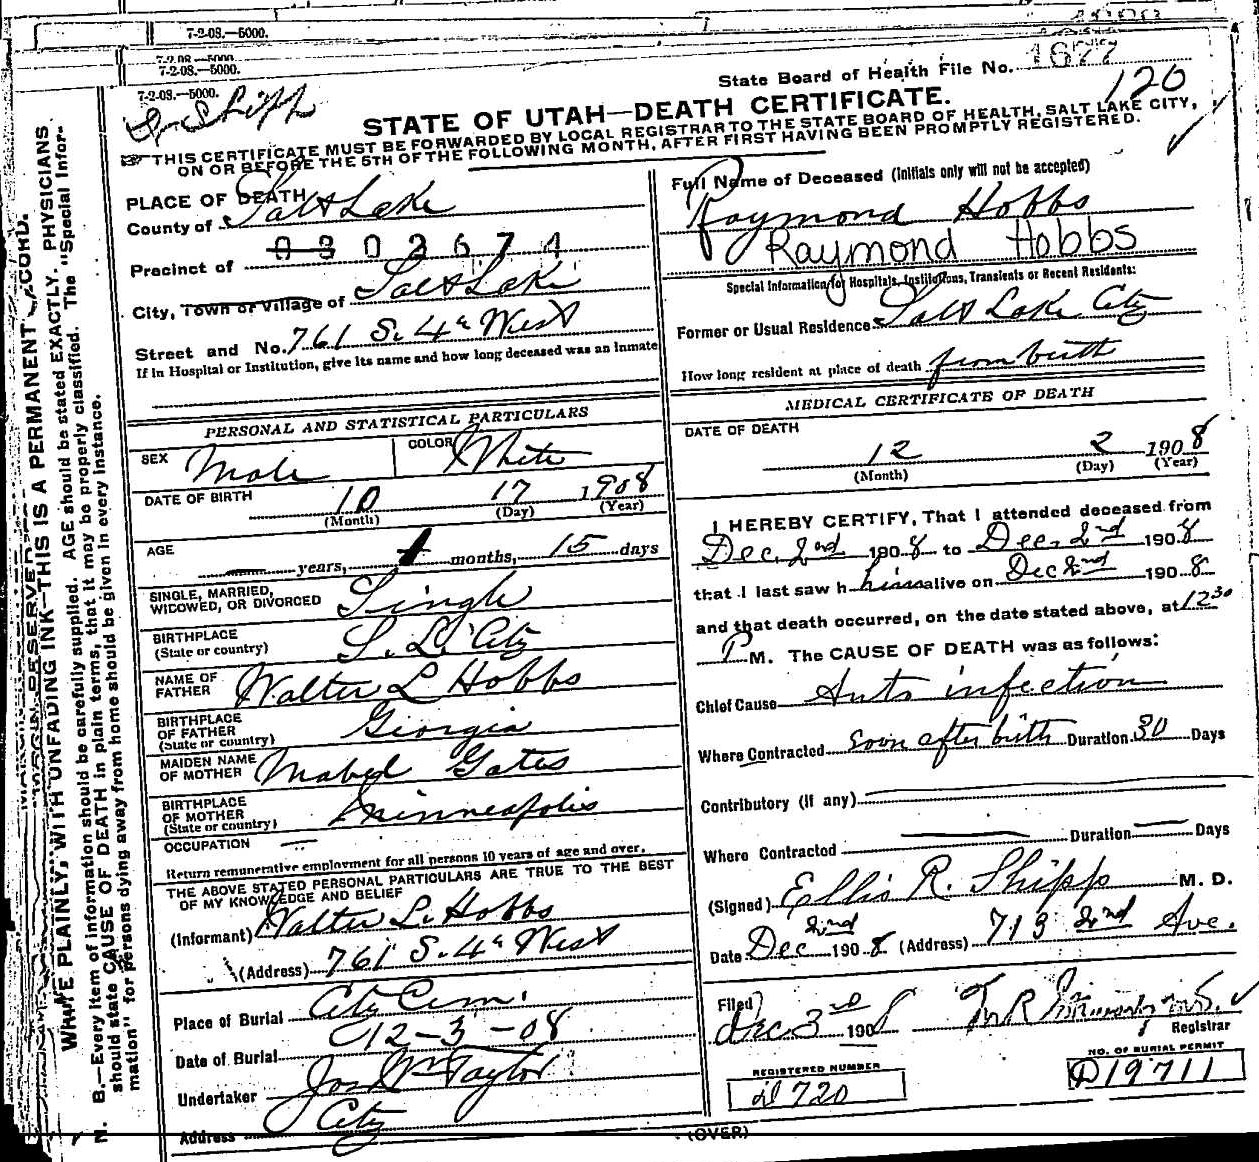 7-2-08.—5000.
7-2-08.—5000.
7-2-08.—5000.
7-2-08.—5000.
Shipp
State Board of Health File No. 1677
120
STATE OF UTAH—DEATH CERTIFICATE.
☞ THIS CERTIFICATE MUST BE FORWARDED BY LOCAL REGISTRAR TO THE STATE BOARD OF HEALTH, SALT LAKE CITY,
ON OR BEFORE THE 5TH OF THE FOLLOWING MONTH, AFTER FIRST HAVING BEEN PROMPTLY REGISTERED.
PLACE OF DEATH
County of Salt Lake
0802674
Precinct of
City, Town or Village of Salt Lake
Street and No. 761 S. 4th West
If in Hospital or Institution, give its name and how long deceased was an Inmate
PERSONAL AND STATISTICAL PARTICULARS
SEX Male COLOR White
DATE OF BIRTH 10 17 1908
(Month) (Day) (Year)
AGE — years, 1 months, 15 days
SINGLE, MARRIED,
WIDOWED, OR DIVORCED Single
BIRTHPLACE
(State or country) S. L. City
NAME OF
FATHER Walter L Hobbs
BIRTHPLACE
OF FATHER
(State or country) Georgia
MAIDEN NAME
OF MOTHER Mabel Gates
BIRTHPLACE
OF MOTHER
(State or country) Minneapolis
OCCUPATION —
Return remunerative employment for all persons 10 years of age and over.
THE ABOVE STATED PERSONAL PARTICULARS ARE TRUE TO THE BEST
OF MY KNOWLEDGE AND BELIEF
(Informant) Walter L. Hobbs
(Address) 761 S. 4th West
Place of Burial City Cem.
Date of Burial 12-3-08
Undertaker Jos Wm Taylor
Address City
Full Name of Deceased (Initials only will not be accepted)
Raymond Hobbs
Raymond Hobbs
Special Information for Hospitals, Institutions, Transients or Recent Residents:
Former or Usual Residence Salt Lake City
How long resident at place of death from birth
MEDICAL CERTIFICATE OF DEATH
DATE OF DEATH
12 2 1908
(Month) (Day) (Year)
I HEREBY CERTIFY, That I attended deceased from
Dec. 2nd 1908 to Dec. 2nd 1908
that I last saw h him alive on Dec 2nd 1908
and that death occurred, on the date stated above, at 12 30
P M. The CAUSE OF DEATH was as follows:
Chief Cause Auto infection
Where Contracted soon after birth Duration 30 Days
Contributory (if any)
Where Contracted — Duration — Days
(Signed) Ellis R. Shipp M. D.
Date Dec 2nd 1908 (Address) 713 2nd Ave.
Filed
Dec 3rd 1908
Registrar
REGISTERED NUMBER
D 720
NO. OF BURIAL PERMIT
D19711
(OVER)
WRITE PLAINLY, WITH UNFADING INK—THIS IS A PERMANENT RECORD.
N. B.—Every item of information should be carefully supplied. AGE should be stated EXACTLY. PHYSICIANS
should state CAUSE OF DEATH in plain terms, that it may be properly classified. The "Special Infor-
mation" for persons dying away from home should be given in every instance.